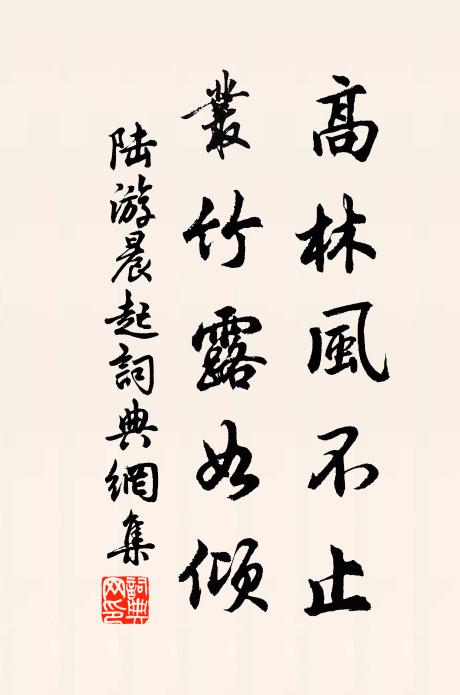 高林風不止
叢竹露如傾
陆游晨起詞典網集
詞典网印